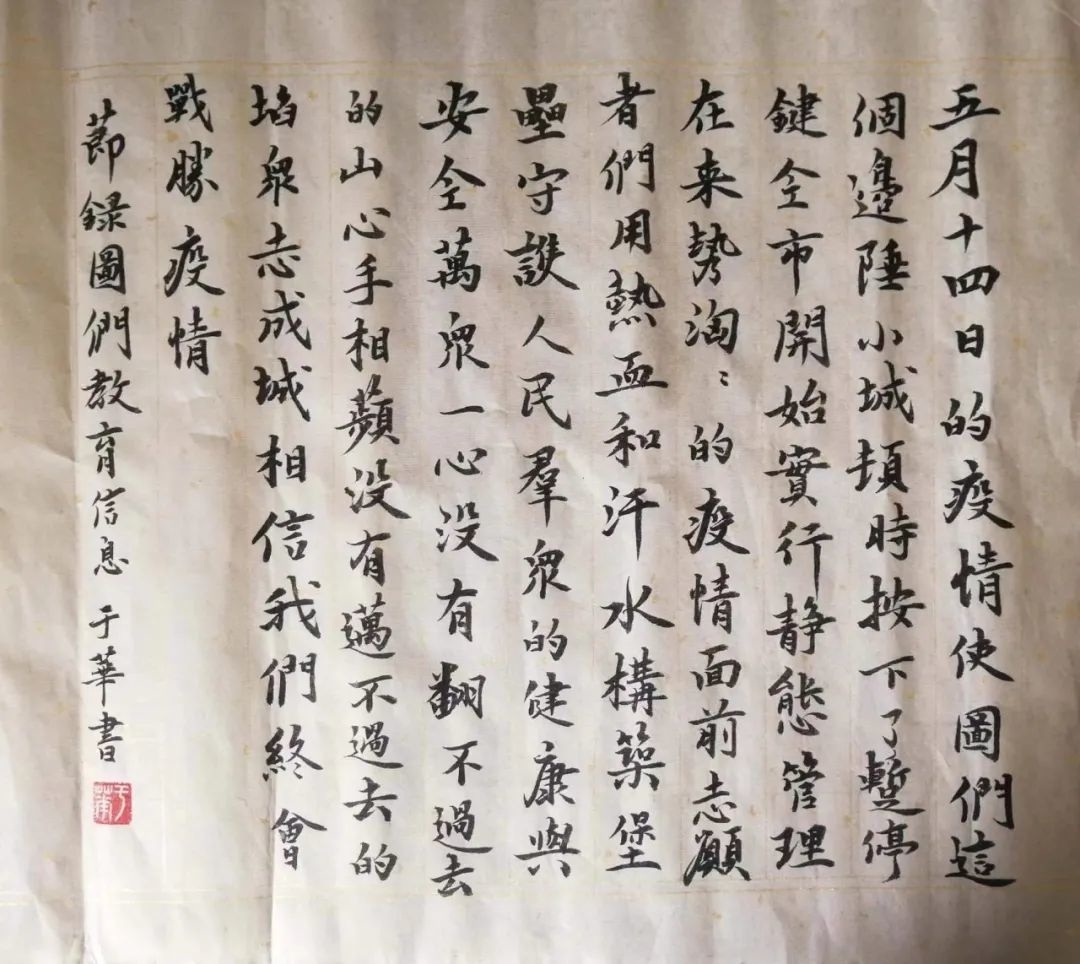 五月十四日的疫情使圖們這
個邊陲小城頓時按下了暫停
鍵全市開始實行静態管理
在来勢洶〻的疫情面前志願
者們用熱血和汗水構築堡
壘守護人民羣眾的健康與
安全萬眾一心没有翻不過去
的山心手相没有邁不過去的
埳眾志成城相信我們終會
戰勝疫情
節録圖們教育信息 于華書